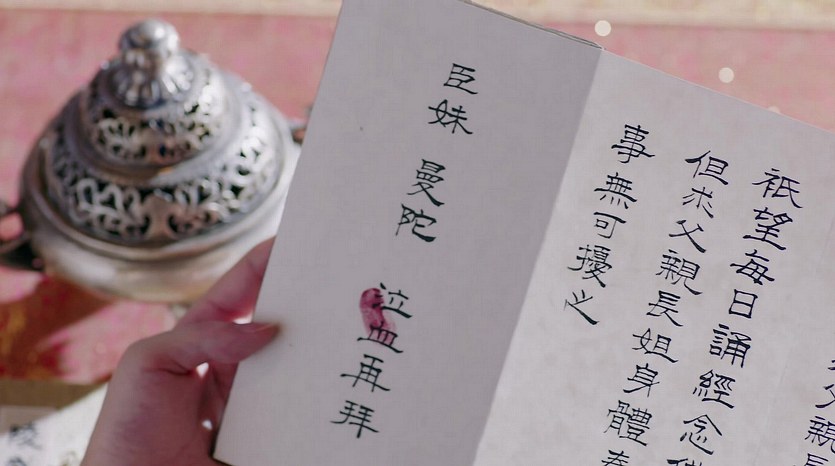 父親
祇望每日誦經念
但求父親長姐身體
事無可擾心
臣妹 曼陀 泣血再拜